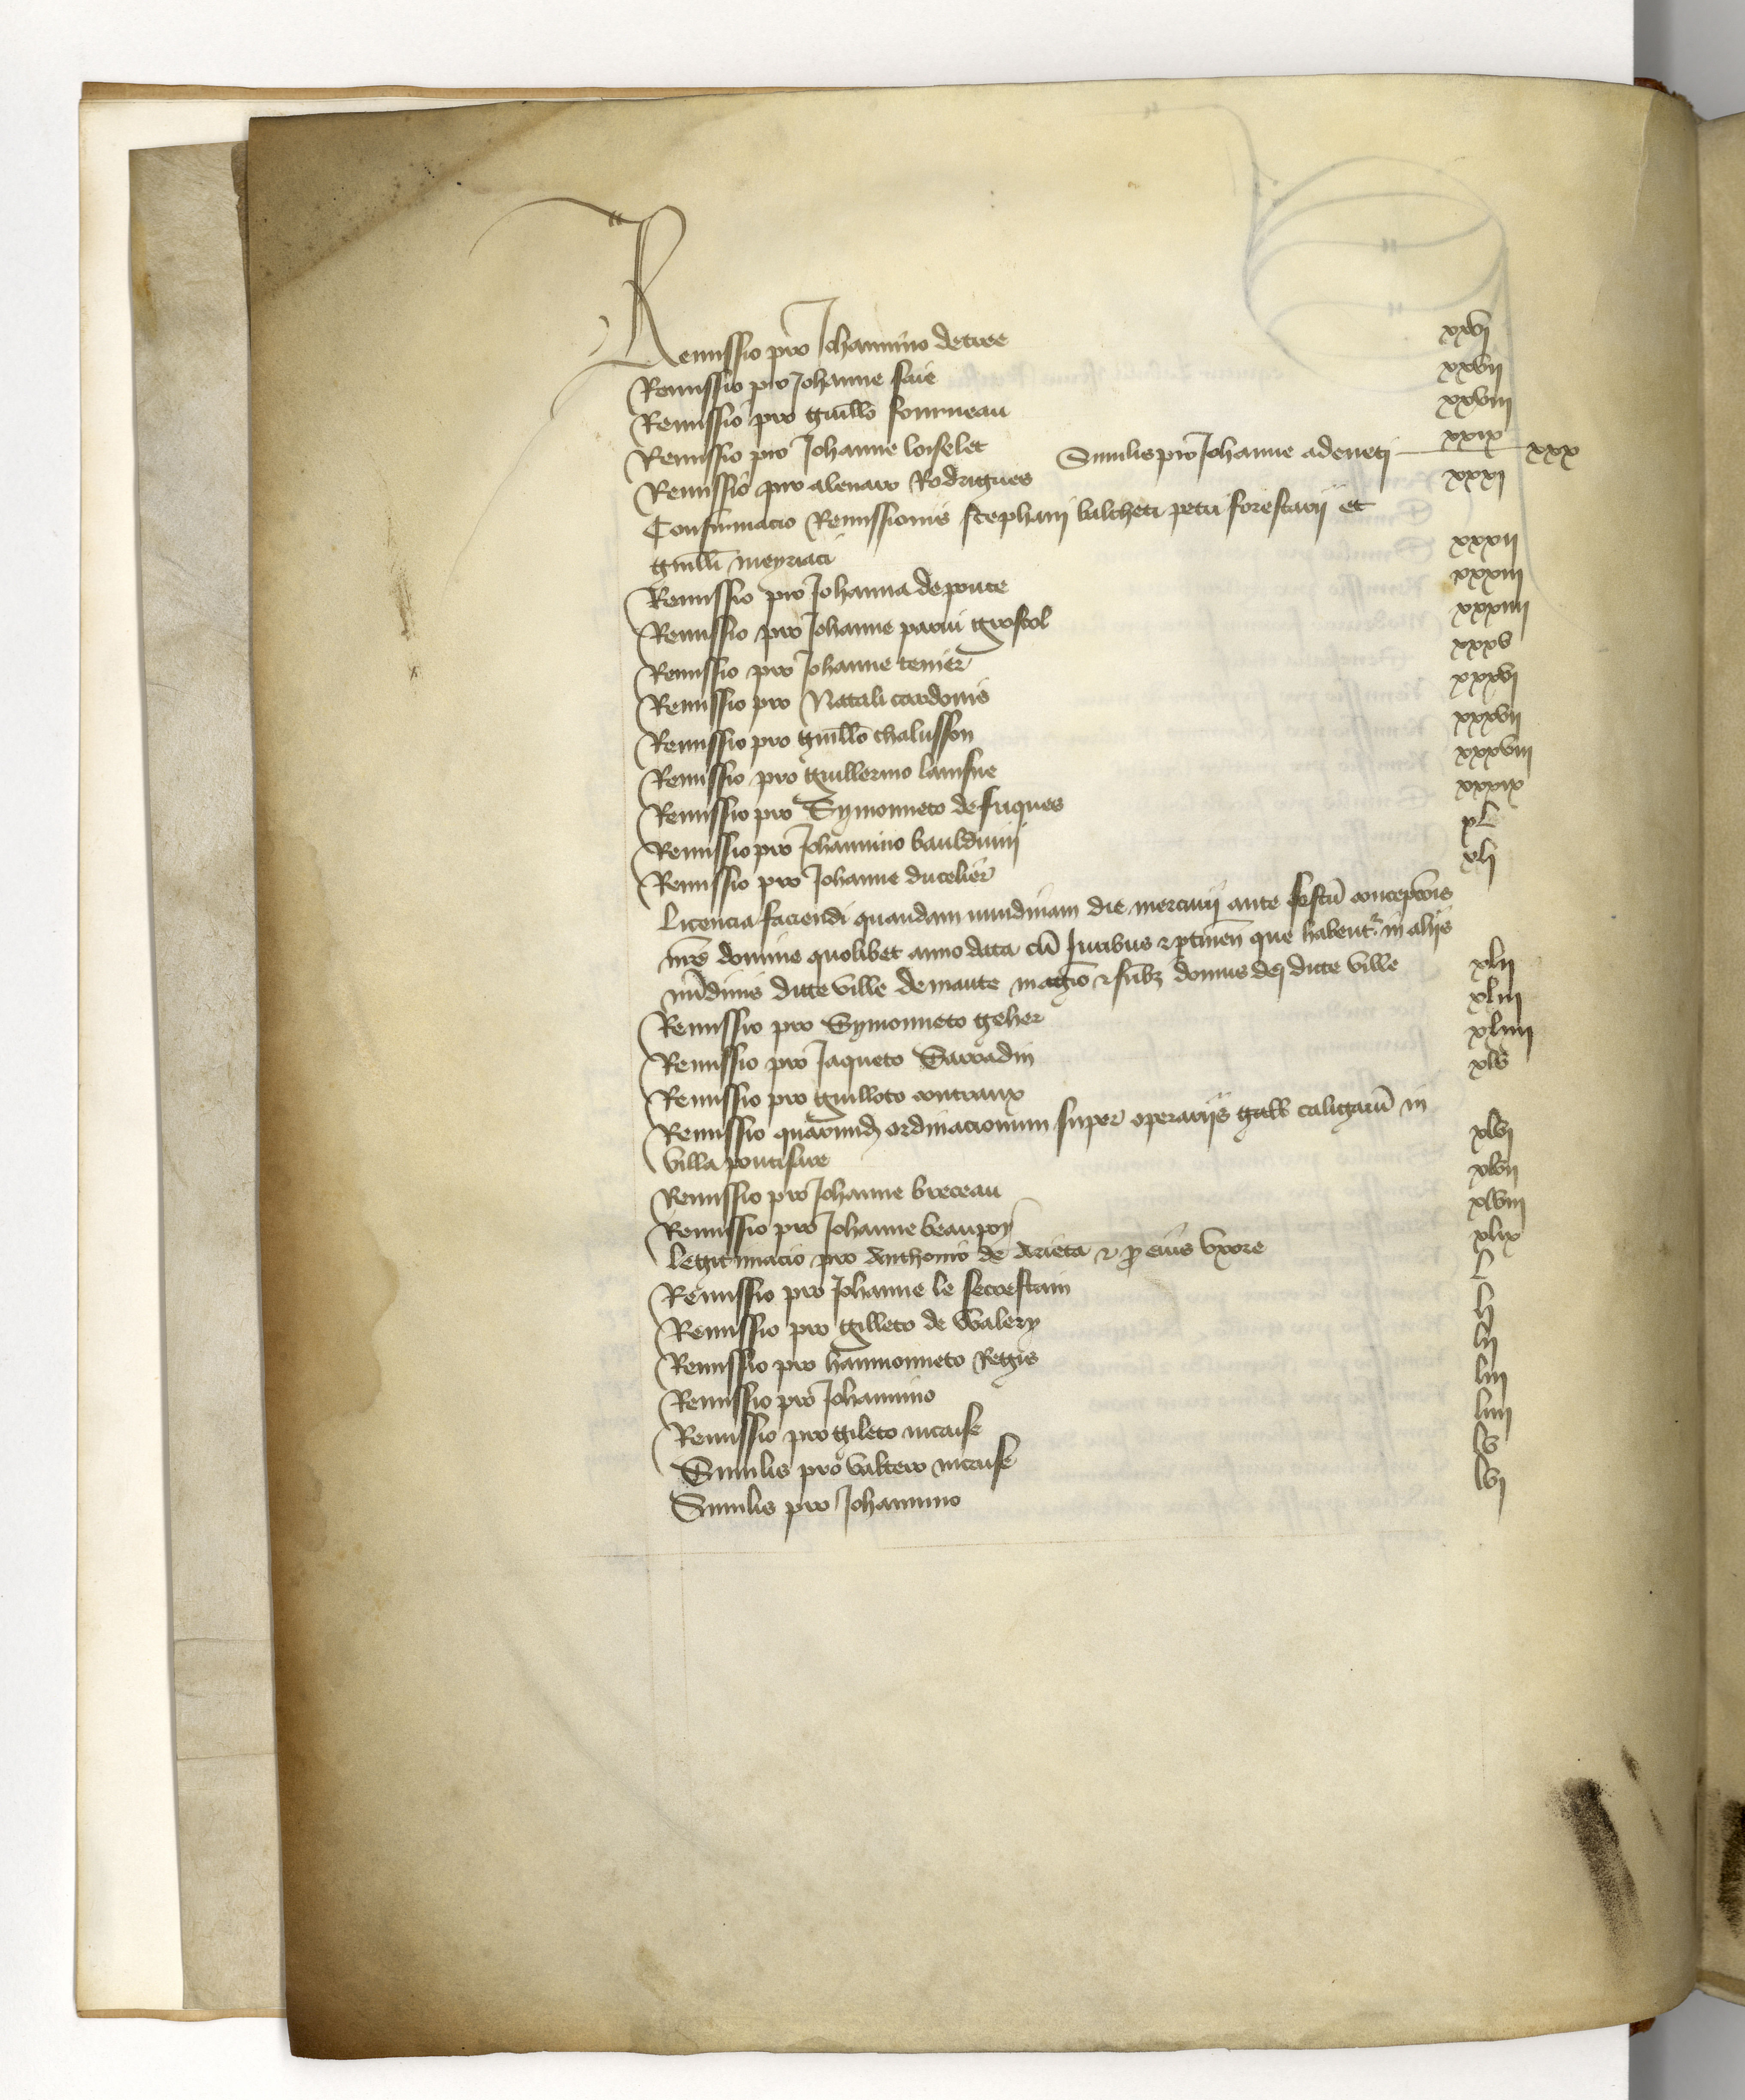 Remissio pro Johannino de tree xxvi
Remissio pro Johanne faie xxvii
Remissio pro Guillo fourneau xxviii
Remissio pro Johanne loiselet xxix Similis pro Johanne adeneti xxx
Remissio pro alvaro Rodrigues xxxi
Confirmacio Remissionis stephani balcheti petri forestarii et
guilli meyriaci xxxii
Remissio pro Johanna de ponte xxxiii
Remissio pro Johanne parvi grostol xxxiiii
Remissio pro Johanne tenier xxxv
Remissio pro Natali cardonis xxxvi
Remissio pro guillo chalusson xxxvii
Remissio pro guillermo lansne xxxviii
Remissio pro Symonneto de friques xxxix
Remissio pro Johannino baulduini xl
Remissio pro Johanne ducelier xli
Licencia faciendi quandam nundinam die mercurii ante festu concepcois
nre domine quolibet anno data cu Juribus et ptinen que habent in aliis
nudinis dicte ville de mante magro et fribz domus dei dicte ville xlii
Remissio pro Symonneto geher xliii
Remissio pro Jaqueto Sarradin xliiii
Remissio pro guilloto contraux xlv
Remissio quarumd ordinacionum super operariis gall caligaru in
villa pontisare xlvi
Remissio pro Johanne breceau xlvii
Remissio pro Johanne beaupoy xlviii
Legitimacio pro Anthonio de Arieta et p eius uxore xlix
Remissio pro Johanne le secrestain l
Remissio pro gilleto de Walery li
Remissio pro hannonneto Regis lii
Remissio pro Johannino liii
Remissio pro gileto nicaise liiii
Similis pro valtero nicaise lv
Similis pro Johannino lvi